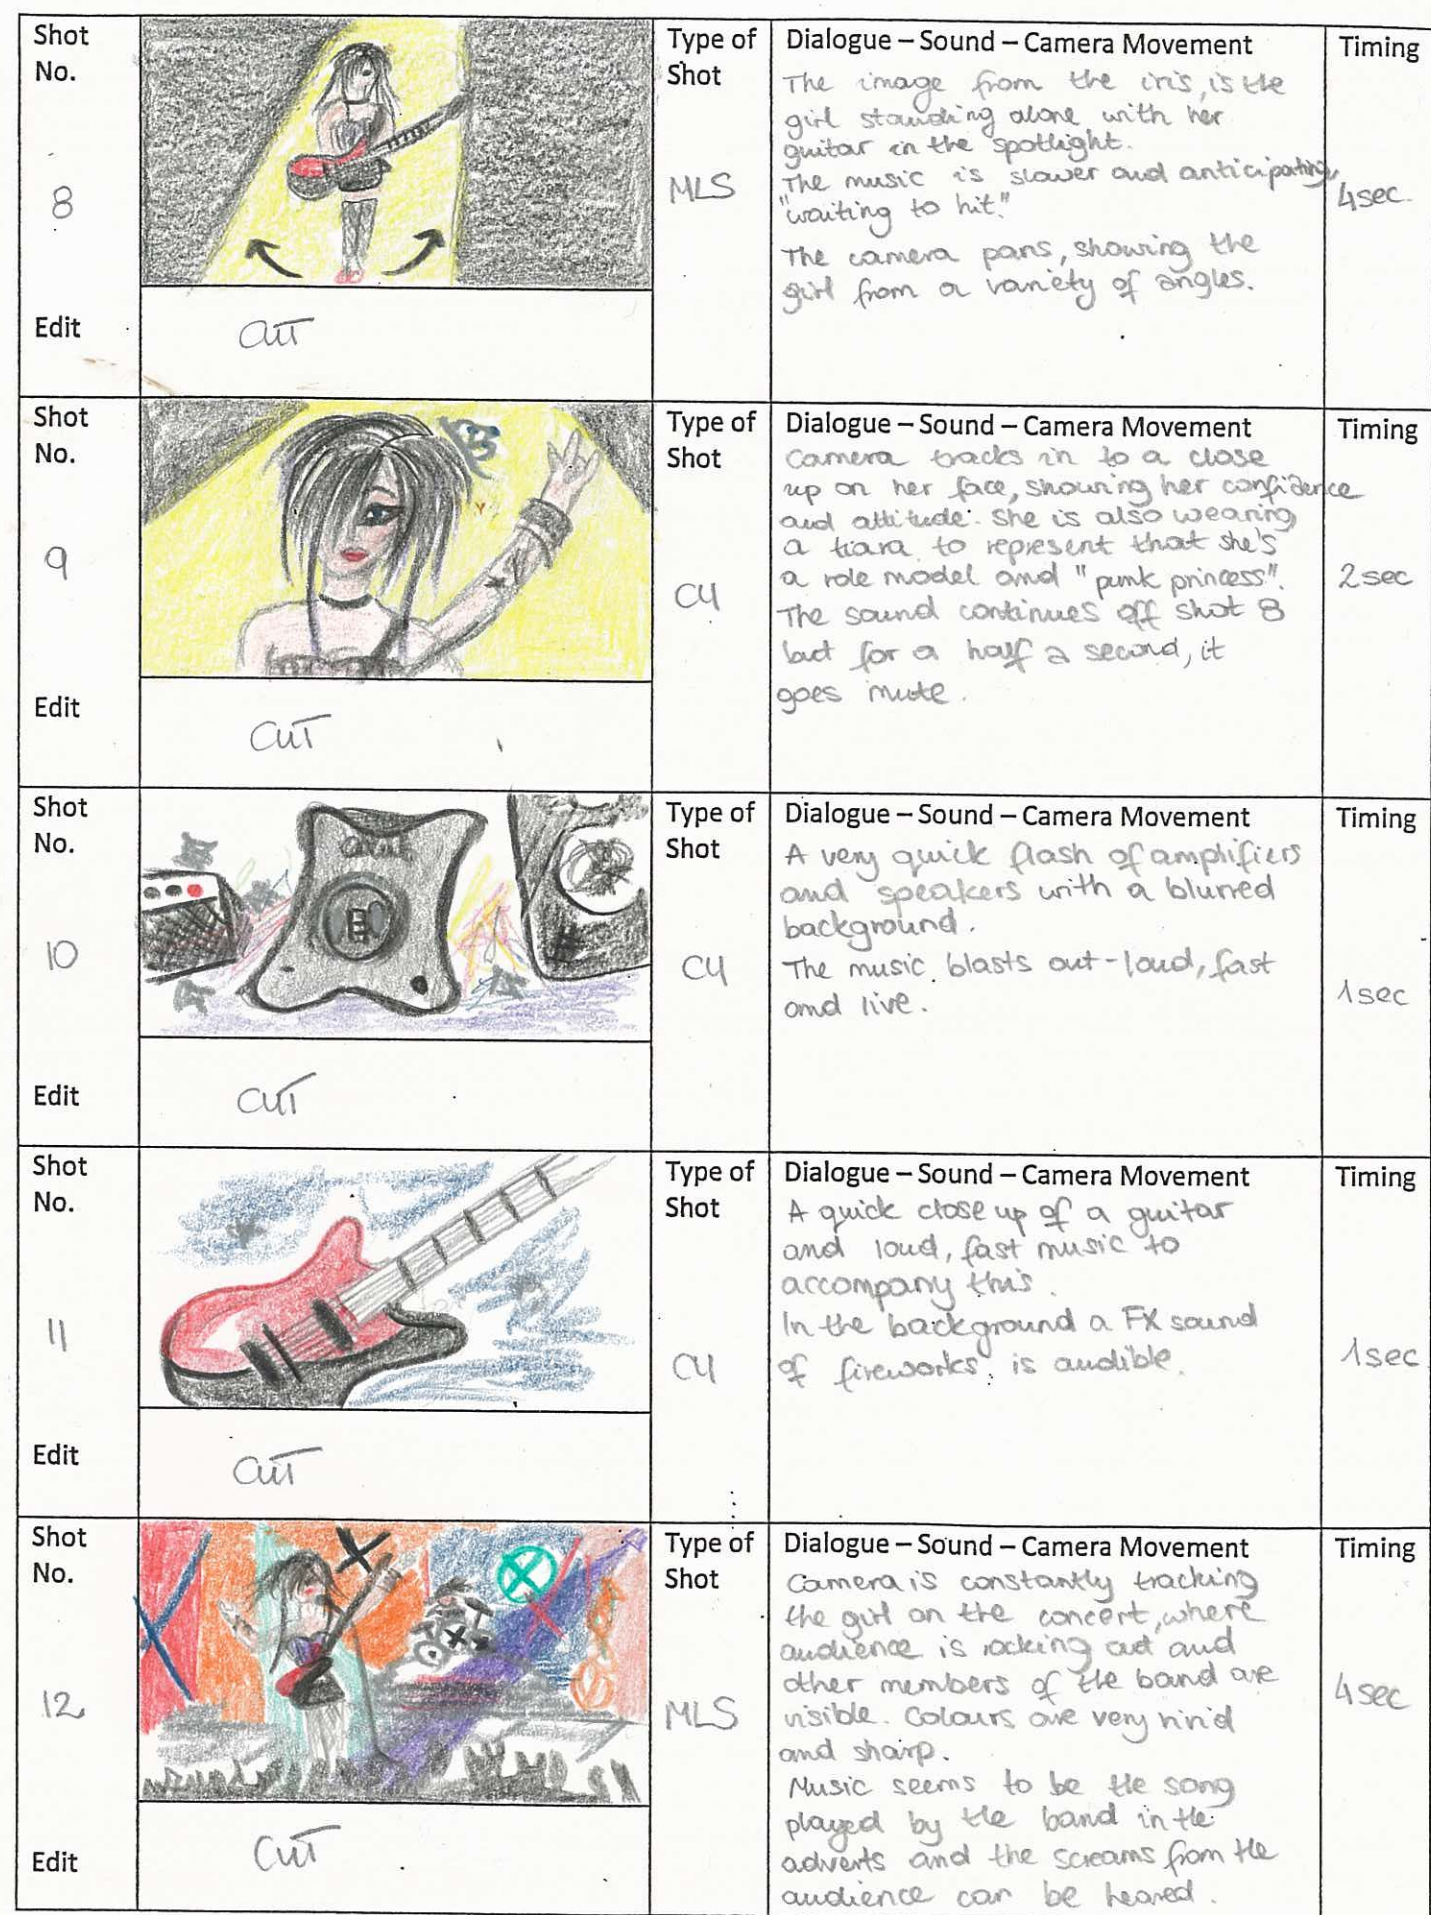 Shot
No.
8
Edit
CUT
Type of
Shot
MLS
Dialogue – Sound – Camera Movement
The image from the iris, is the
girl standing alone with her
guitar in the spotlight.
The music is slower and anticipating,
"waiting to hit."
The camera pans, showing the
girl from a variety of angles.
Timing
4sec.
Shot
No.
9
Edit
CUT
Type of
Shot
CU
Dialogue – Sound – Camera Movement
Camera tracks in to a close
up on her face, showing her confidence
and attitude. She is also wearing
a tiara to represent that she's
a role model and "punk princess".
The sound continues off shot 8
but for a half a second, it
goes mute.
Timing
2sec
Shot
No.
10
Edit
CUT
Type of
Shot
CU
Dialogue – Sound – Camera Movement
A very quick flash of amplifiers
and speakers with a blurred
background.
The music blasts out-loud, fast
and live.
Timing
1sec
Shot
No.
11
Edit
CUT
Type of
Shot
CU
Dialogue – Sound – Camera Movement
A quick close up of a guitar
and loud, fast music to
accompany this.
In the background a FX sound
of fireworks is audible.
Timing
1sec
Shot
No.
12
Edit
CUT
Type of
Shot
MLS
Dialogue – Sound – Camera Movement
Camera is constantly tracking
the girl on the concert, where
audience is rocking out and
other members of the band are
visible. Colours are very vivid
and sharp.
Music seems to be the song
played by the band in the
adverts and the screams from the
audience can be heared.
Timing
4sec